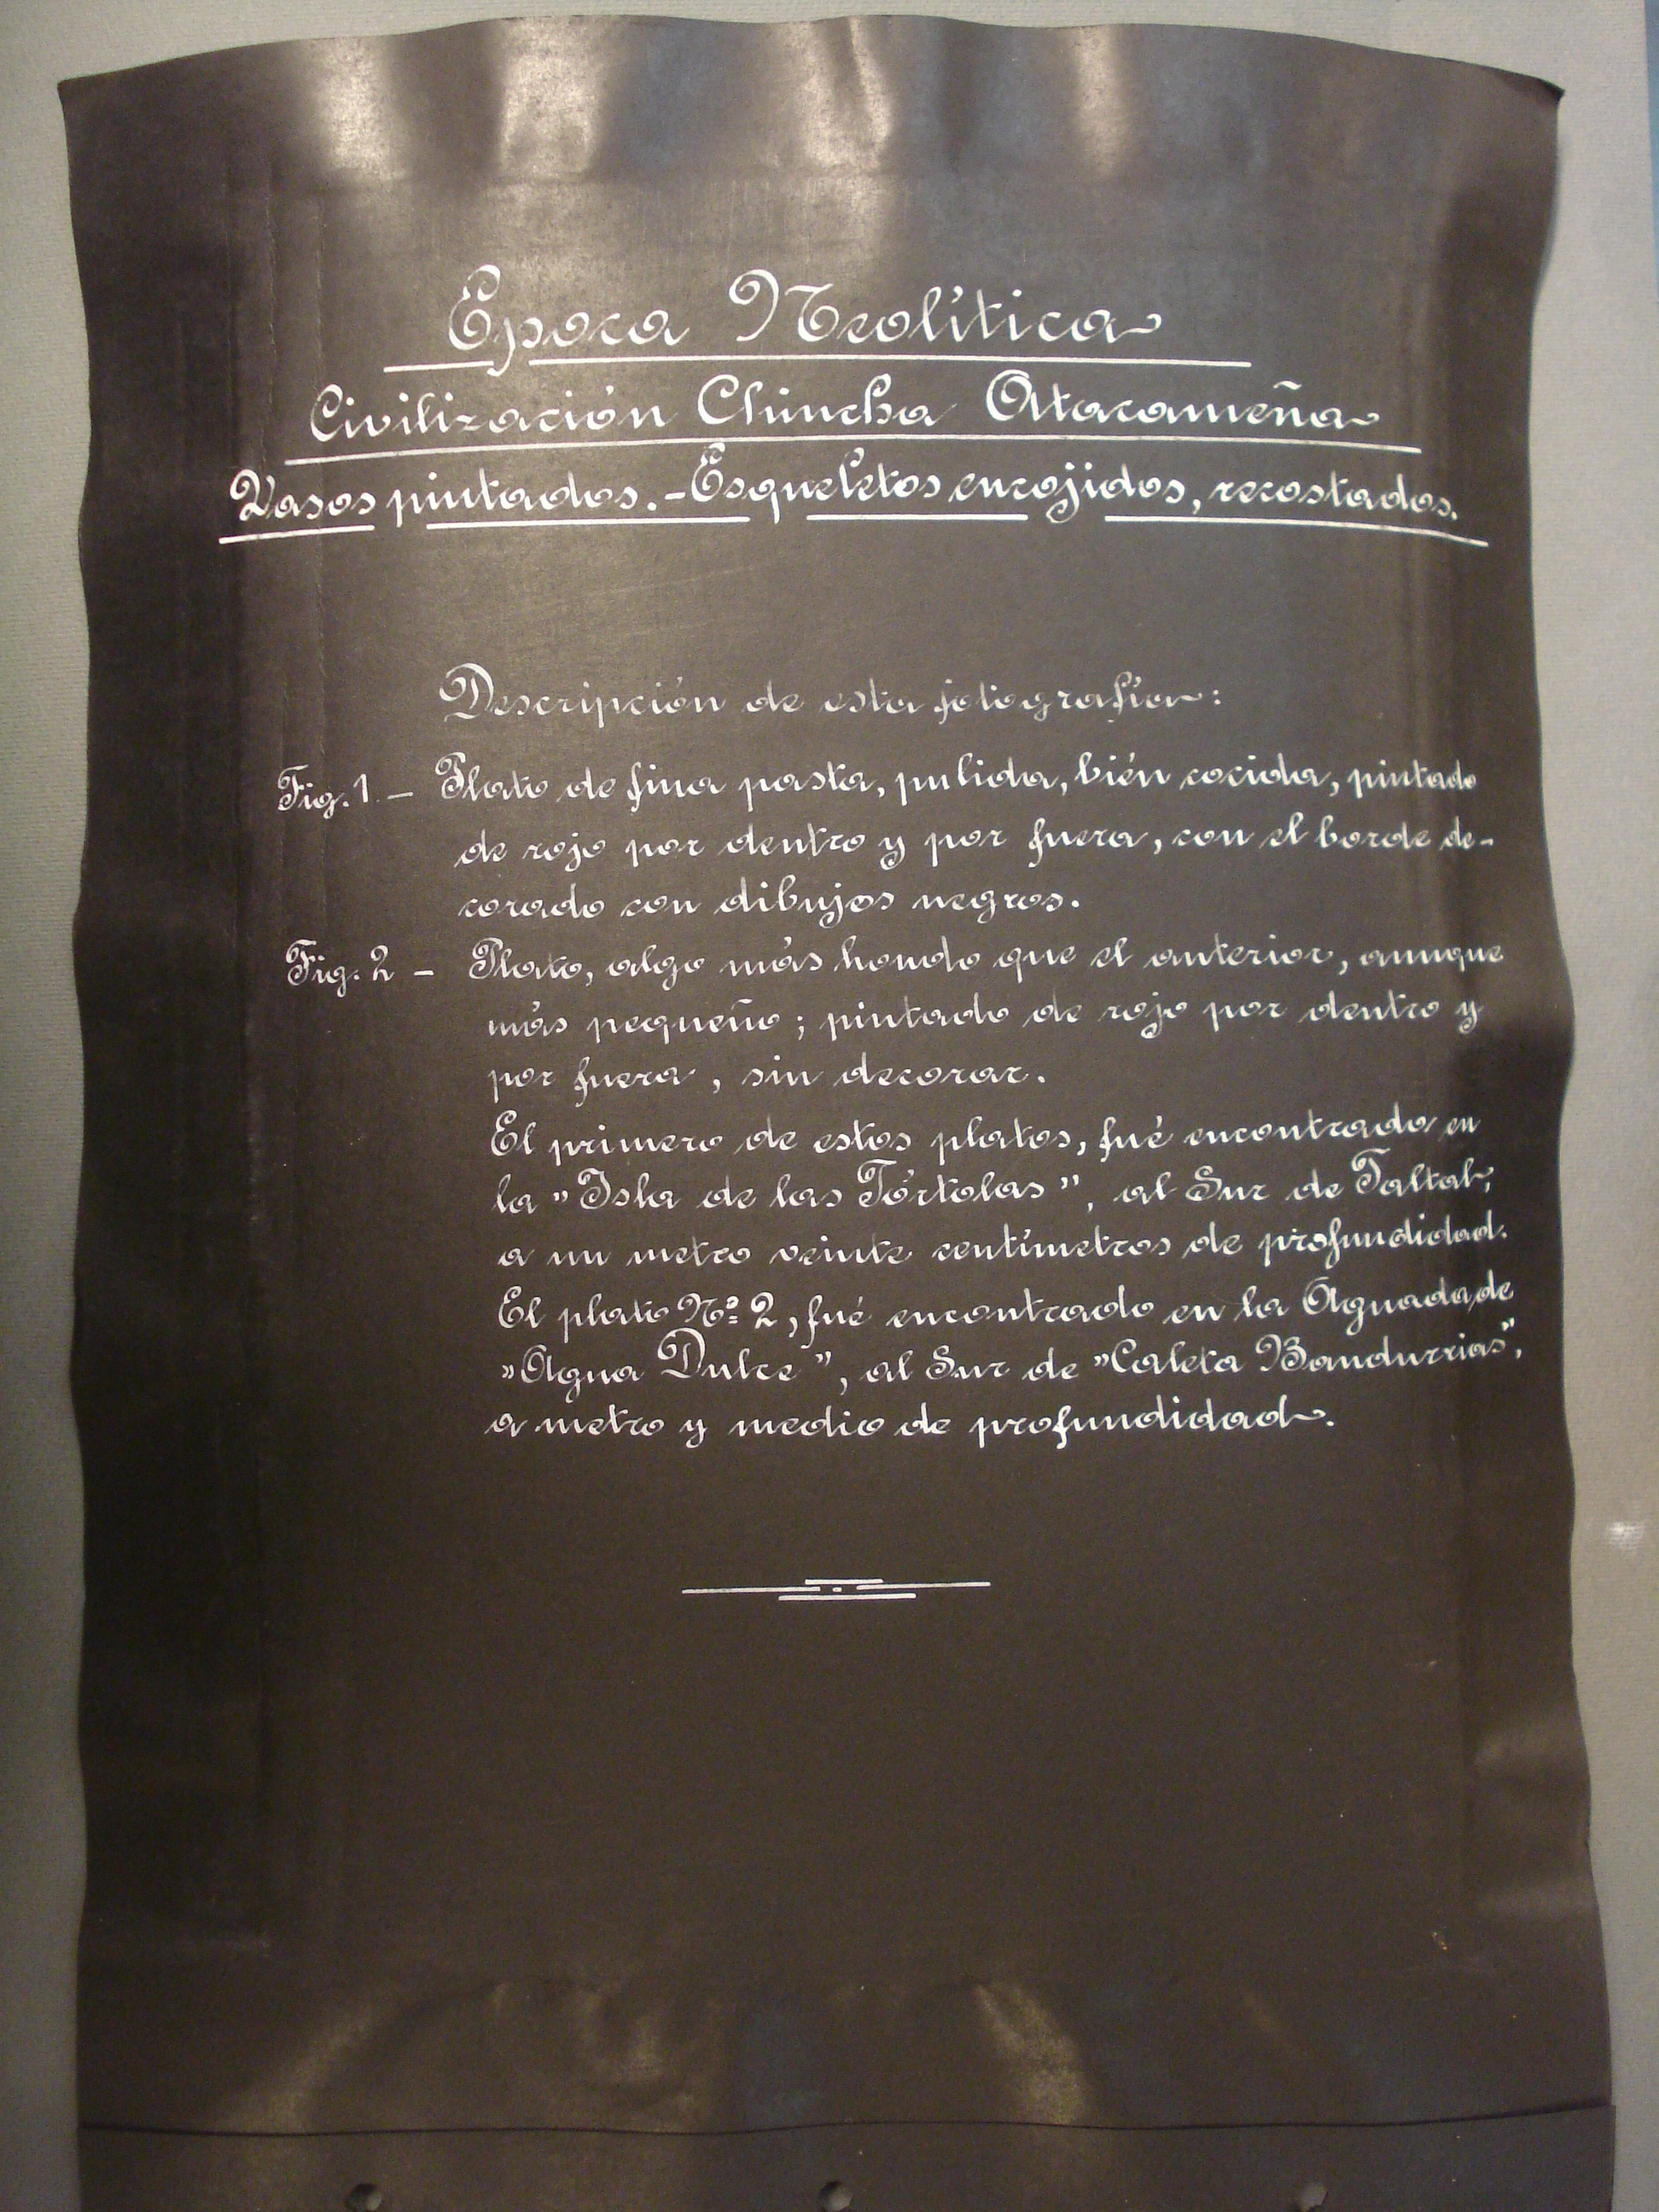 Epoca Neolítica
Civilización Chincha Atacameña
Vasos pintados. - Esqueletos encojidos, recostados.
Descripción de esta fotografía:
Fig. 1 - Plato de fina pasta, pulida, bién cocida, pintado
de rojo por dentro y por fuera, con el borde de-
corado con dibujos negros.
Fig. 2 - Plato, algo más hondo que el anterior, aunque
más pequeño; pintado de rojo por dentro y
por fuera, sin decorar.
El primero de estos platos, fué encontrado en
la "Isla de las Tórtolas", al Sur de Taltal,
a un metro veinte centímetros de profundidad.
El plato Nº 2, fué encontrado en la Aguada de
"Agua Dulce", al Sur de "Caleta Bandurrias",
a metro y medio de profundidad.